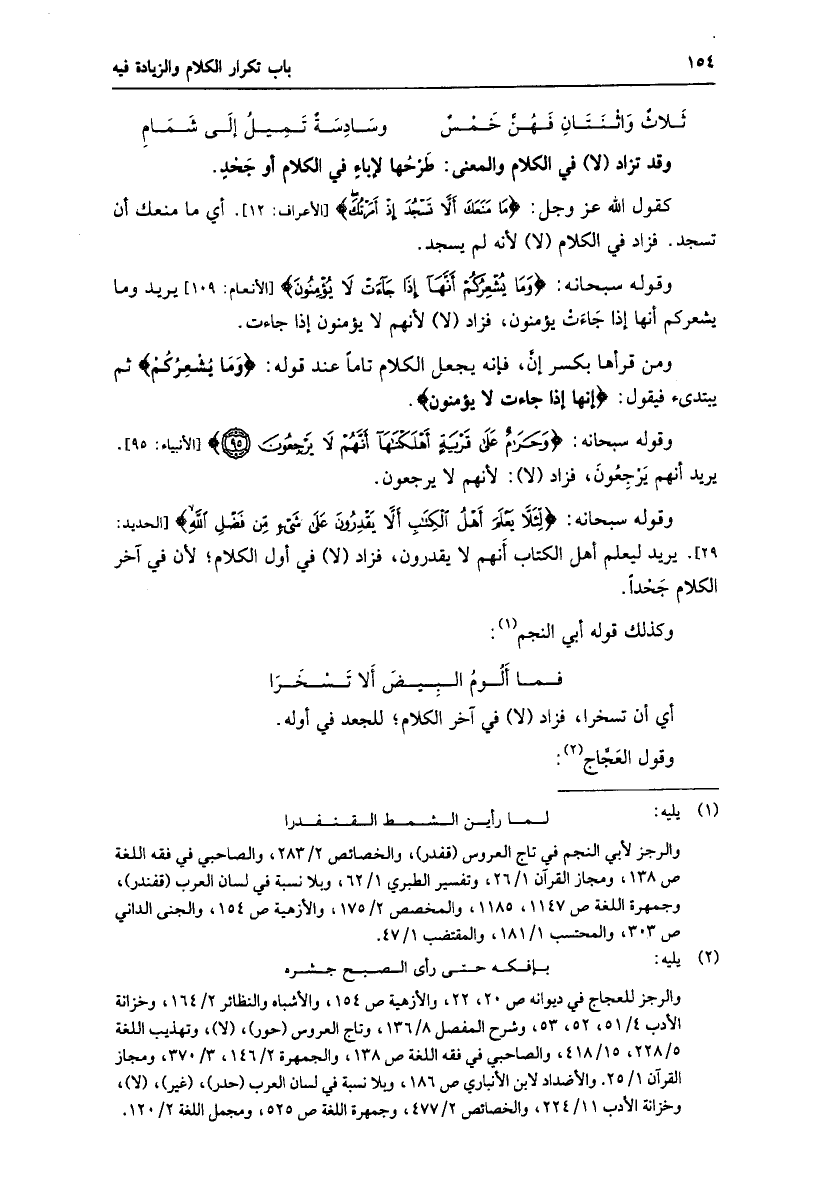 ١٥٤
باب تكرار الكلام والزيادة فيه
ثَلاثٌ وَاثْنَتَانِ فَهُنَّ خَمْسٌ وسَادِسَةٌ تَمِيلُ إلَى شَمَامِ
وقد تزاد (لا) في الكلام والمعنى: طَرْحُها لإباءٍ في الكلام أو جَحْدٍ.
كقول الله عز وجل: ﴿مَا مَنَعَكَ أَلَّا تَسْجُدَ إِذْ أَمَرْتُكَ﴾ [الأعراف: ١٢]. أي ما منعك أن
تسجد. فزاد في الكلام (لا) لأنه لم يسجد.
وقوله سبحانه: ﴿وَمَا يُشْعِرُكُمْ أَنَّهَا إِذَا جَاءَتْ لَا يُؤْمِنُونَ﴾ [الأنعام: ١٠٩] يريد وما
يشعركم أنها إذا جَاءَتْ يؤمنون، فزاد (لا) لأنهم لا يؤمنون إذا جاءت.
ومن قرأها بكسر إنَّ، فإنه يجعل الكلام تاماً عند قوله: ﴿وَمَا يُشْعِرُكُمْ﴾ ثم
يبتدىء فيقول: ﴿إنها إذا جاءت لا يؤمنون﴾.
وقوله سبحانه: ﴿وَحَرَامٌ عَلَى قَرْيَةٍ أَهْلَكْنَاهَا أَنَّهُمْ لَا يَرْجِعُونَ ﴿٩٥﴾﴾ [الأنبياء: ٩٥].
يريد أنهم يَرْجِعُونَ، فزاد (لا): لأنهم لا يرجعون.
وقوله سبحانه: ﴿لِئَلَّا يَعْلَمَ أَهْلُ الْكِتَابِ أَلَّا يَقْدِرُونَ عَلَى شَيْءٍ مِّن فَضْلِ اللَّهِ﴾ [الحديد:
٢٩]. يريد ليعلم أهل الكتاب أنهم لا يقدرون، فزاد (لا) في أول الكلام؛ لأن في آخر
الكلام جَحْداً.
وكذلك قوله أبي النجم(١):
فـمـا أَلُـومُ الـبِـيـضَ أَلا تَـسْـخَـرَا
أي أن تسخرا، فزاد (لا) في آخر الكلام؛ للجعد في أوله.
وقول العَجَّاج(٢):
(١) يليه: لـمـا رأيـن الـشـمـط الـقـنـفـدرا
والرجز لأبي النجم في تاج العروس (قفدر)، والخصائص ٢/ ٢٨٣، والصاحبي في فقه اللغة
ص ١٣٨، ومجاز القرآن ١/ ٢٦، وتفسير الطبري ١/ ٦٢، وبلا نسبة في لسان العرب (قفندر)،
وجمهرة اللغة ص ١١٤٧، ١١٨٥، والمخصص ٢/ ١٧٥، والأزهية ص ١٥٤، والجنى الداني
ص ٣٠٣، والمحتسب ١/ ١٨١، والمقتضب ١/ ٤٧.
(٢) يليه: بـإفـكـه حـتـى رأى الـصـبـح جـشـره
والرجز للعجاج في ديوانه ص ٢٠، ٢٢، والأزهية ص ١٥٤، والأشباه والنظائر ٢/ ١٦٤، وخزانة
الأدب ٤/ ٥١، ٥٢، ٥٣، وشرح المفصل ٨/ ١٣٦، وتاج العروس (حور)، (لا)، وتهذيب اللغة
٥/ ٢٢٨، ١٥/ ٤١٨، والصاحبي في فقه اللغة ص ١٣٨، والجمهرة ٢/ ١٤٦، ٣/ ٣٧٠، ومجاز
القرآن ١/ ٢٥. والأضداد لابن الأنباري ص ١٨٦، وبلا نسبة في لسان العرب (حدر)، (غير)، (لا)،
وخزانة الأدب ١١/ ٢٢٤، والخصائص ٢/ ٤٧٧، وجمهرة اللغة ص ٥٢٥، ومجمل اللغة ٢/ ١٢٠.